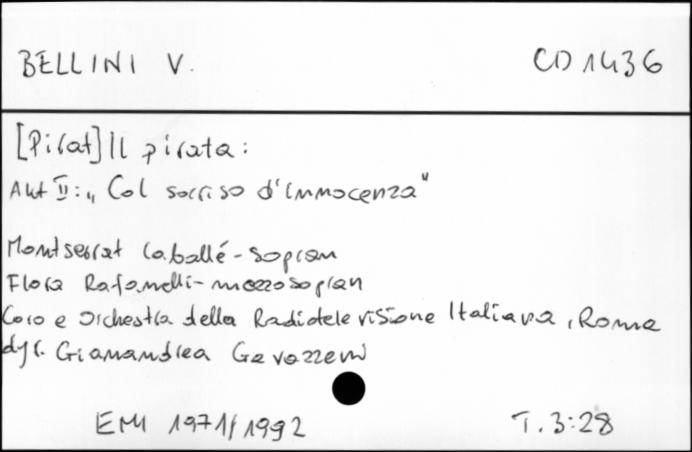 BELLINI V. CD 1436
[Pirat] Il pirata:
Akt II: „Col sorriso d'innocenza"
Montserrat Caballé - sopran
Flora Rafanelli - mezzosopran
Coro e Orchestra della Radiotelevisione Italiana, Roma
dyr. Gianandrea Gavazzeni
EMI 1971/1992 T. 3:28